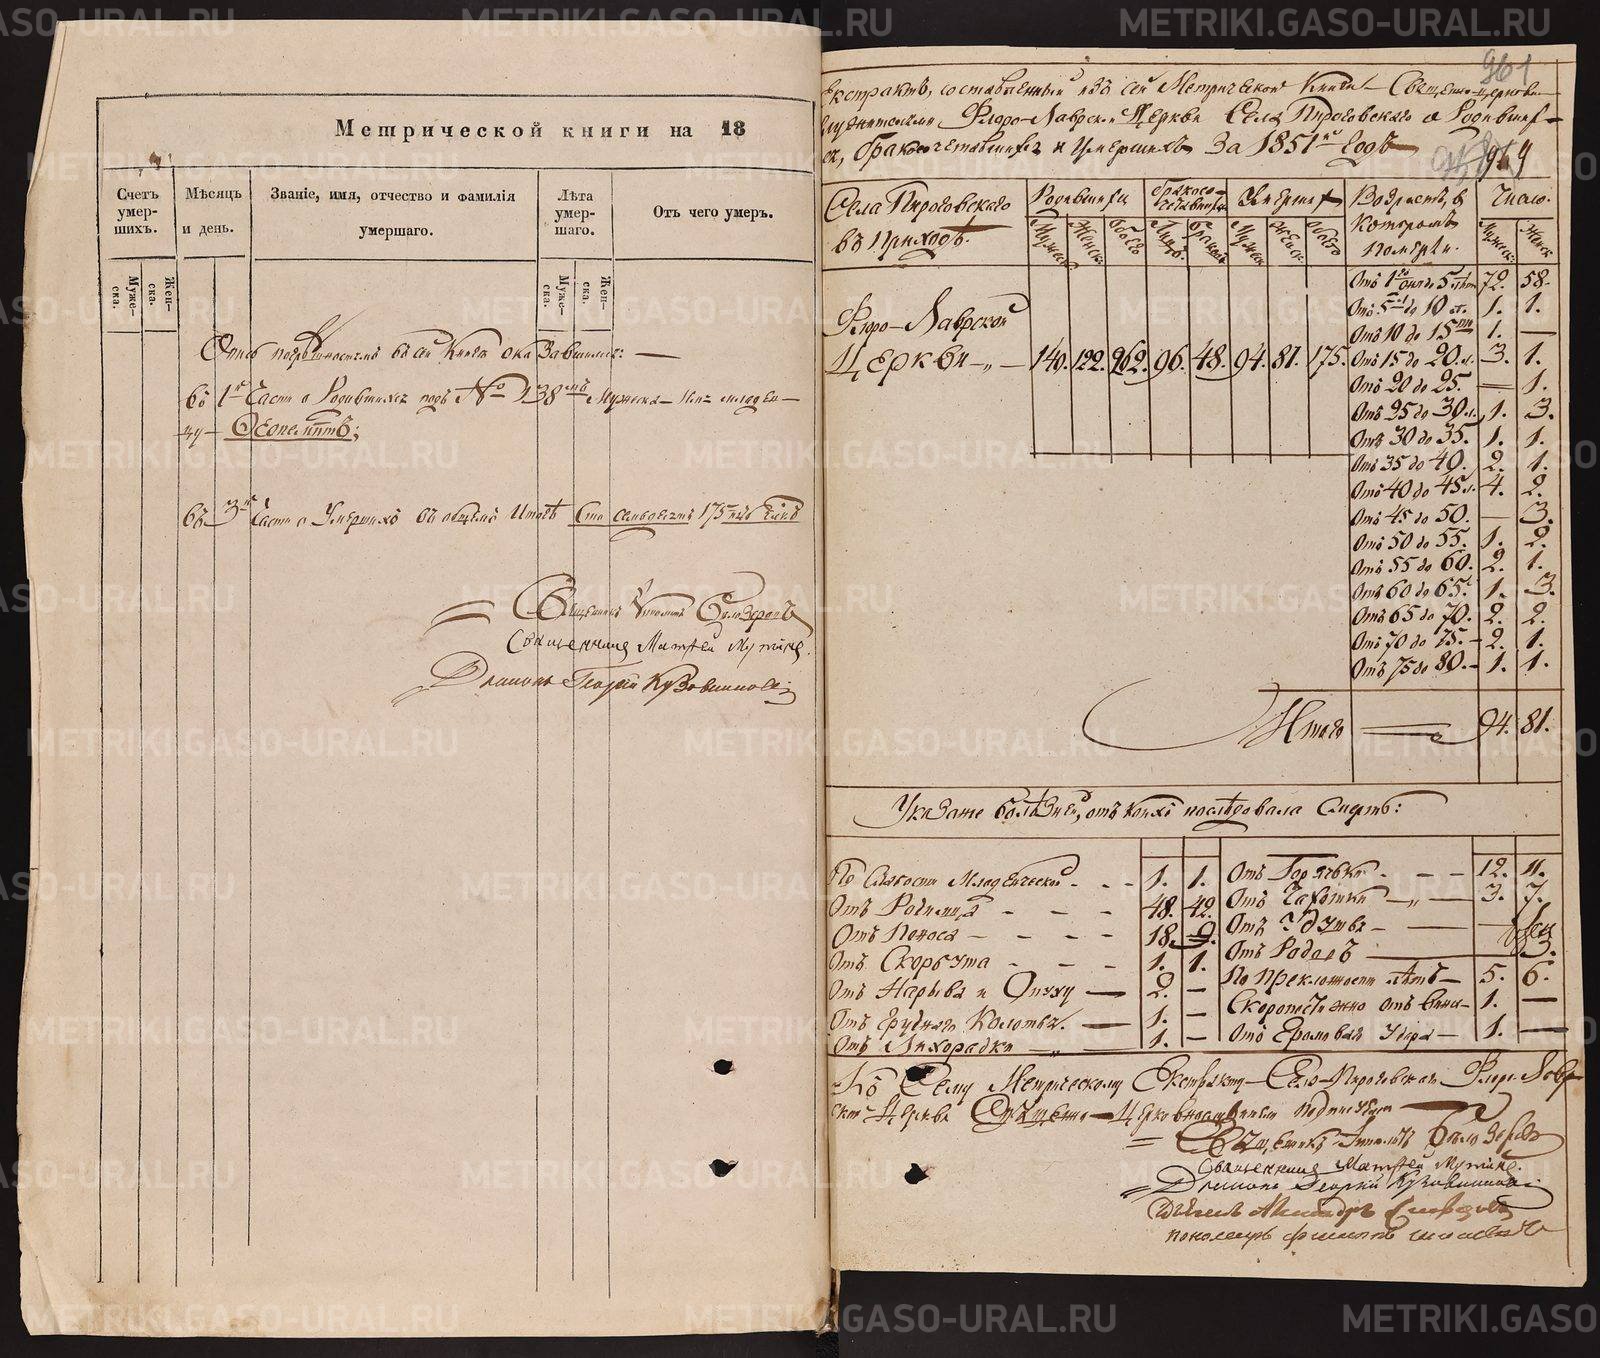 Метрической книги на 18
Счетъ умер- шихъ.
Мѣсяцъ и день.
Званіе, имя, отчество и фамилія умершаго.
Лѣта умер- шаго.
Отъ чего умеръ.
Муже- ска.
Жен- ска.
Муже- ска.
Жен- ска.
Опись погрѣшностямъ въ сей Книгѣ оказавшимся: —
въ 1й Части о Родившихся подъ № 138мъ Мужеска — имя младен-
цу —
въ 3й Части о Умершихъ въ общемъ Итогѣ Сто семьдесятъ 175
Священникъ Ипполитъ Бѣлозеровъ
Священникъ Матфей Мутинъ.
Діаконъ Георгій Кузовниковъ
961
Екстрактъ, составленный изъ сей Метрической Книги — Священно-церковно-
служителями Флоро-Лаврской Церкви Села Пироговскаго о Родивших-
ся, бракосочетавшихся и Умершихъ За 1851й Годъ
964
Села Пироговскаго въ приходѣ.
Родившихся
бракосо- четавшихся
Умершихъ
Возрастъ, въ которомъ померли.
Число.
Мужеск. Женск. Обоего Лицъ. Браковъ Мужеск. Женск. Обоего Мужеск. Женск.
Флоро-Лаврской
Церкви — 140. 122. 262. 96. 48. 94. 81. 175.
Отъ 1го дня до 5 лѣт 72. 58.
Отъ 5 до 10 1. 1.
Отъ 10 до 15 1. —
Отъ 15 до 20 3. 1.
Отъ 20 до 25. — 1.
Отъ 25 до 30 1. 3.
Отъ 30 до 35. 1. 1.
Отъ 35 до 40. 2. 1.
Отъ 40 до 45 4. 2.
Отъ 45 до 50. — 3.
Отъ 50 до 55. 1. 2.
Отъ 55 до 60. 2. 1.
Отъ 60 до 65. 1. 3.
Отъ 65 до 70. 2. 2.
Отъ 70 до 75. 2. 1.
Отъ 75 до 80. 1. 1.
Итого — 94. 81.
Указаніе болѣзней, отъ коихъ послѣдовала Смерть:
По Слабости Младенческой 1. 1.
Отъ Родимца 48. 42.
Отъ Поноса 18. 9.
Отъ Скорбута 1. 1.
Отъ Нарыва и Опуху — 2. —
Отъ Грудного Колотья. — 1. —
Отъ Лихорадки — 1. —
Отъ Горячки 12. 11.
Отъ Чахотки 3. 7.
Отъ Удушья
Отъ Родовъ 3.
По Преклонности лѣтъ — 5. 6.
Скоропостижно отъ вина — 1. —
Отъ Громоваго Удара — 1. —
Къ Сему Метрическому Екстракту — Села Пироговскаго Флоро-Лавр-
ской Церкви Священно — Церковнослужители подписуемся
Священникъ Ипполитъ Бѣлозеровъ
Священникъ Матфей Мутинъ.
Діаконъ Георгій Кузовниковъ
METRIKI.GASO-URAL.RU